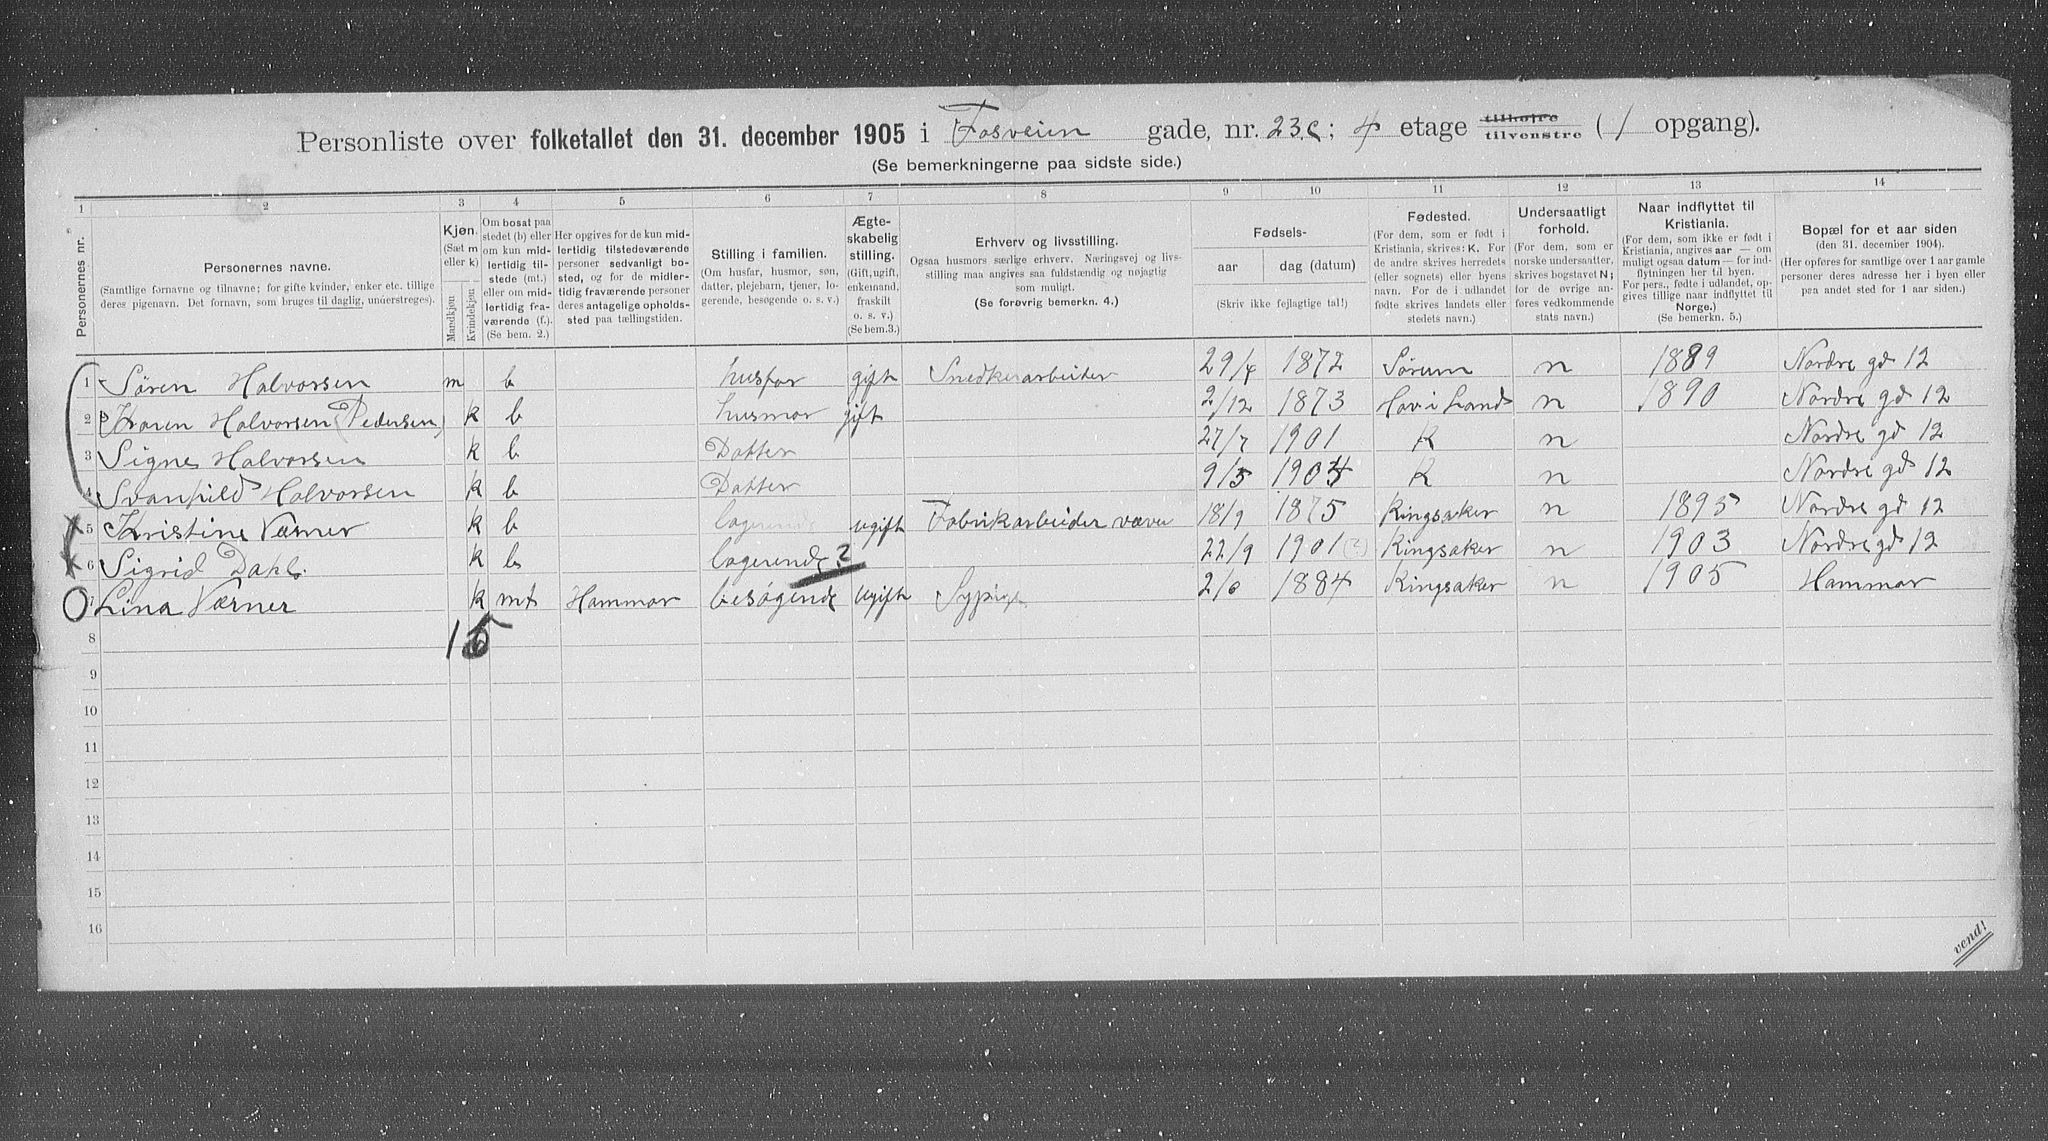 Personliste over folketallet den 31. december 1905 i Fosveien gade, nr. 23c; 4 etage tilhøire tilvenstre (1 opgang).
(Se bemerkningerne paa sidste side.)
1 2 3 4 5 6 7 8 9 10 11 12 13 14
Personernes nr.
Personernes navne.
(Samtlige fornavne og tilnavne; for gifte kvinder, enker etc. tillige
deres pigenavn. Det fornavn, som bruges til daglig, understreges).
Kjøn.
(Sæt m
eller k)
Mandkjøn
Kvindekjøn
Om bosat paa
stedet (b) eller
om kun mid-
lertidig til-
stede (mt.)
eller om mid-
lertidig fra-
værende (f.).
(Se bem. 2.)
Her opgives for de kun mid-
lertidig tilstedeværende
personer sedvanlig bo-
sted, og for de midler-
tidig fraværende personer
deres antagelige opholds-
sted paa tællingstiden.
Stilling i familien.
(Om husfar, husmor, søn,
datter, plejebarn, tjener, lo-
gerende, besøgende o. s. v.)
Ægte-
skabelig
stilling.
(Gift, ugift,
enkemand,
fraskilt
o. s. v.)
(Se bem. 3.)
Erhverv og livsstilling.
Ogsaa husmors særlige erhverv. Næringsvej og livs-
stilling maa angives saa fuldstændig og nøjagtig
som muligt.
(Se forøvrig bemerkn. 4.)
Fødsels-
aar dag (datum)
(Skriv ikke fejlagtige tal!)
Fødested.
(For dem, som er født i
Kristiania, skrives: K. For
de andre skrives herredets
(eller sognets) eller byens
navn. For de i udlandet
fødte skrives landets eller
stedets navn.)
Undersaatligt
forhold.
(For dem, som er
norske undersaatter,
skrives bogstavet N;
for de øvrige an-
føres vedkommende
stats navn.)
Naar indflyttet til
Kristiania.
(For dem, som ikke er født i
Kristiania, angives aar — om
muligt ogsaa datum — for ind-
flytningen her til byen.
For pers., fødte i udlandet, op-
gives tillige naar indflyttet til
Norge.)
(Se bemerkn. 5.)
Bopæl for et aar siden
(den 31. december 1904).
(Her opføres for samtlige over 1 aar gamle
personer deres adresse her i byen eller
paa andet sted for 1 aar siden.)
1 Søren Halvorsen m b husfar gift Snedkerarbeider 29/4 1872 Sørum n 1889 Nordre gd 12
2 Karen Halvorsen (Pedersen) k b husmor gift 2/12 1873 Hov i Land n 1890 Nordre gd 12
3 Signe Halvorsen k b Datter 27/7 1901 K n Nordre gd 12
4 Svanhild Halvorsen k b Datter 9/5 1904 K n Nordre gd 12
5 Kristine Værner k b logerende ugift Fabrikarbeider væver 18/9 1875 Ringsaker n 1895 Nordre gd 12
6 Sigrid Dahl. k b logerende ? 22/9 1901 (?) Ringsaker n 1903 Nordre gd 12
7 Lina Værner k mt Hammar besøgende ugift Sypige 2/6 1884 Ringsaker n 1905 Hammar
8 1 5
9
10
11
12
13
14
15
16
vend!